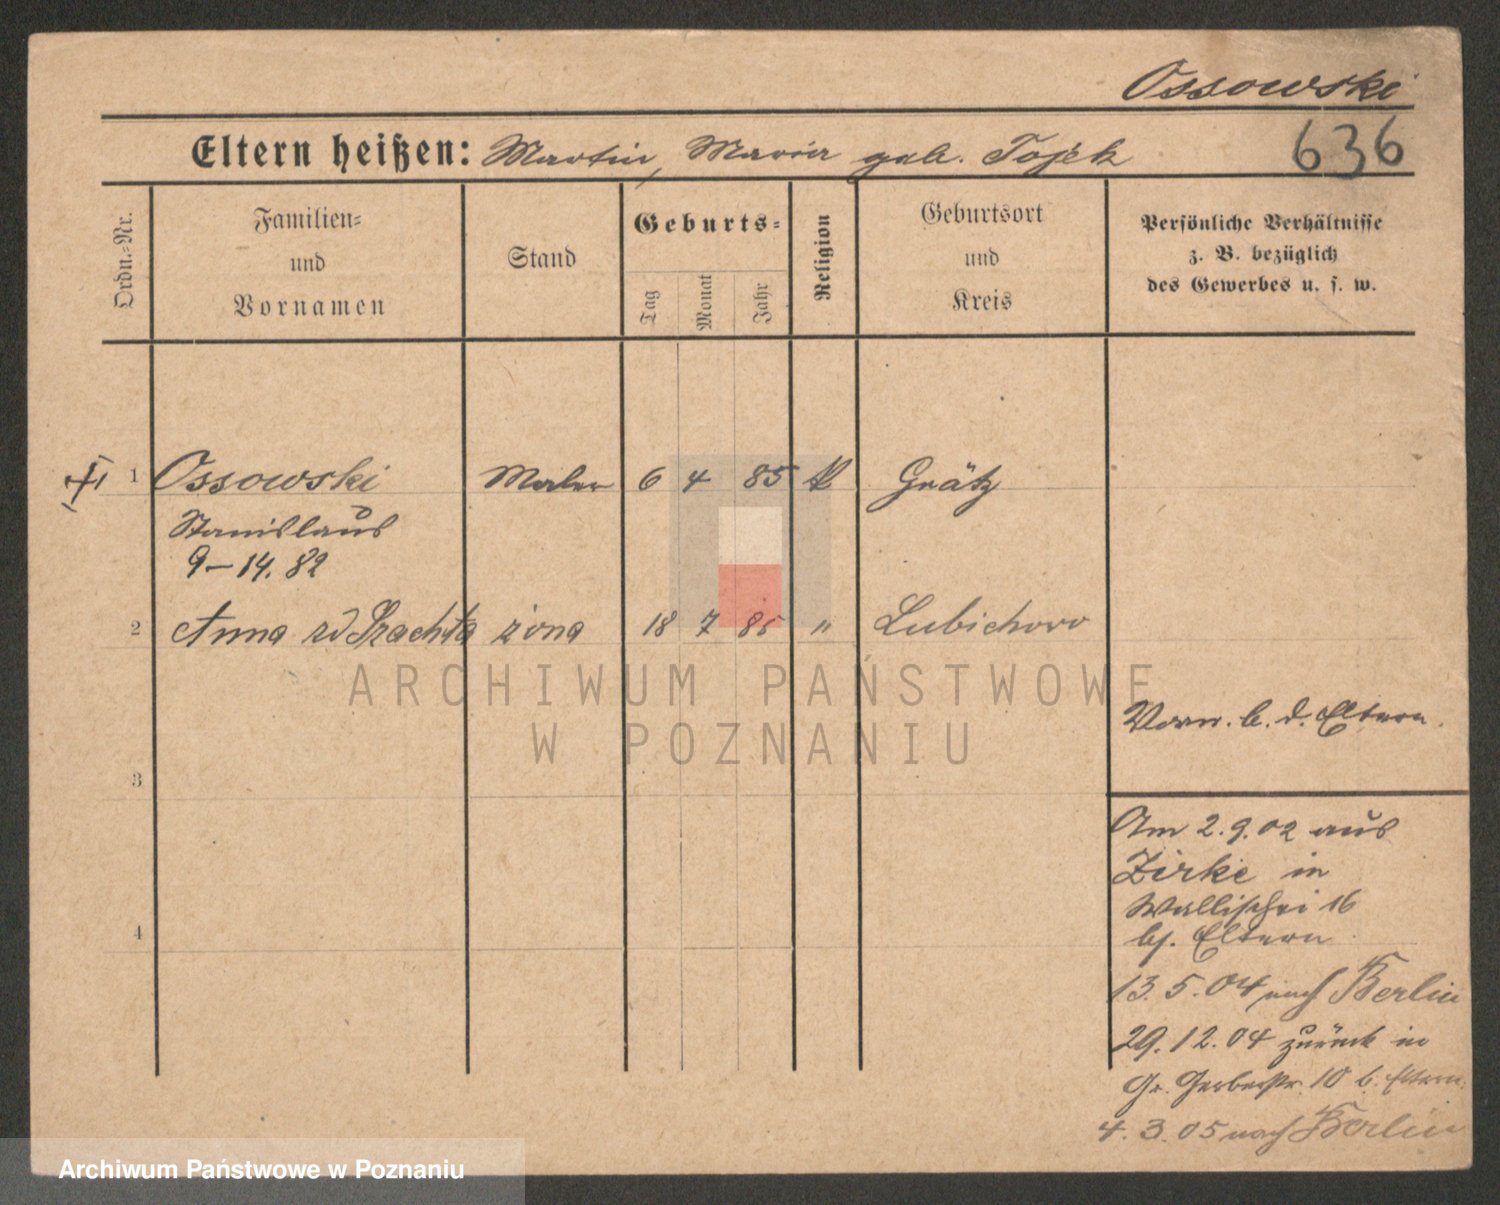 Ossowski
636
Eltern heißen: Martin, Maria geb. Tojek
Ordn.-Nr.
Familien-
und
Vornamen
Stand
Geburts-
Tag
Monat
Jahr
Religion
Geburtsort
und
Kreis
Persönliche Verhältnisse
z. B. bezüglich
des Gewerbes u. s. w.
1 Ossowski Maler 6 4 85 Grätz
Stanislaus
9-14.82
2 Anna zd Szachta żona 18 7 85 " Lubichowo
ARCHIWUM PAŃSTWOWE
W POZNANIU
Vorn. b. d. Eltern.
3
Am 2.9.02 aus
Zirke in
Wallischei 16
bj. Eltern
4
13.5.04 nach Berlin
29.12.04 zurück in
Gr. Gerberstr. 10 b. Eltern.
4.3.05 nach Berlin
Archiwum Państwowe w Poznaniu